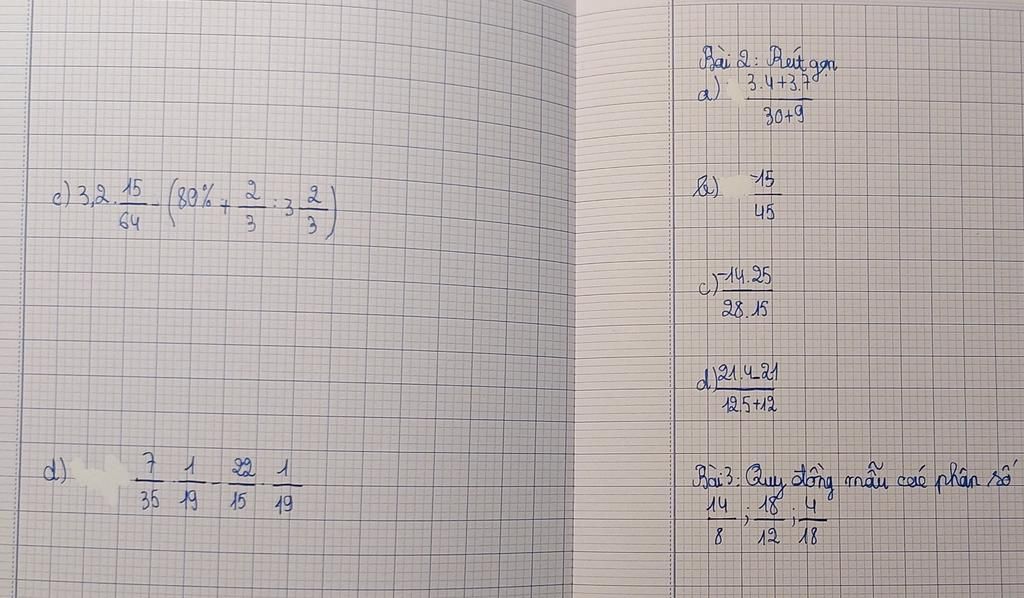 c) 3,2 . 15/64 - (80% + 2/3 : 3 2/3)
d) 7/35 . 1/19 - 22/15 . 1/19
Bài 2: Rút gọn
a) 3.4+3.7 / 30+9
b) -15/45
c) -14.25 / 28.15
d) 21.4-21 / 12.5+12
Bài 3: Quy đồng mẫu các phân số
14/8 ; 18/12 ; 4/18